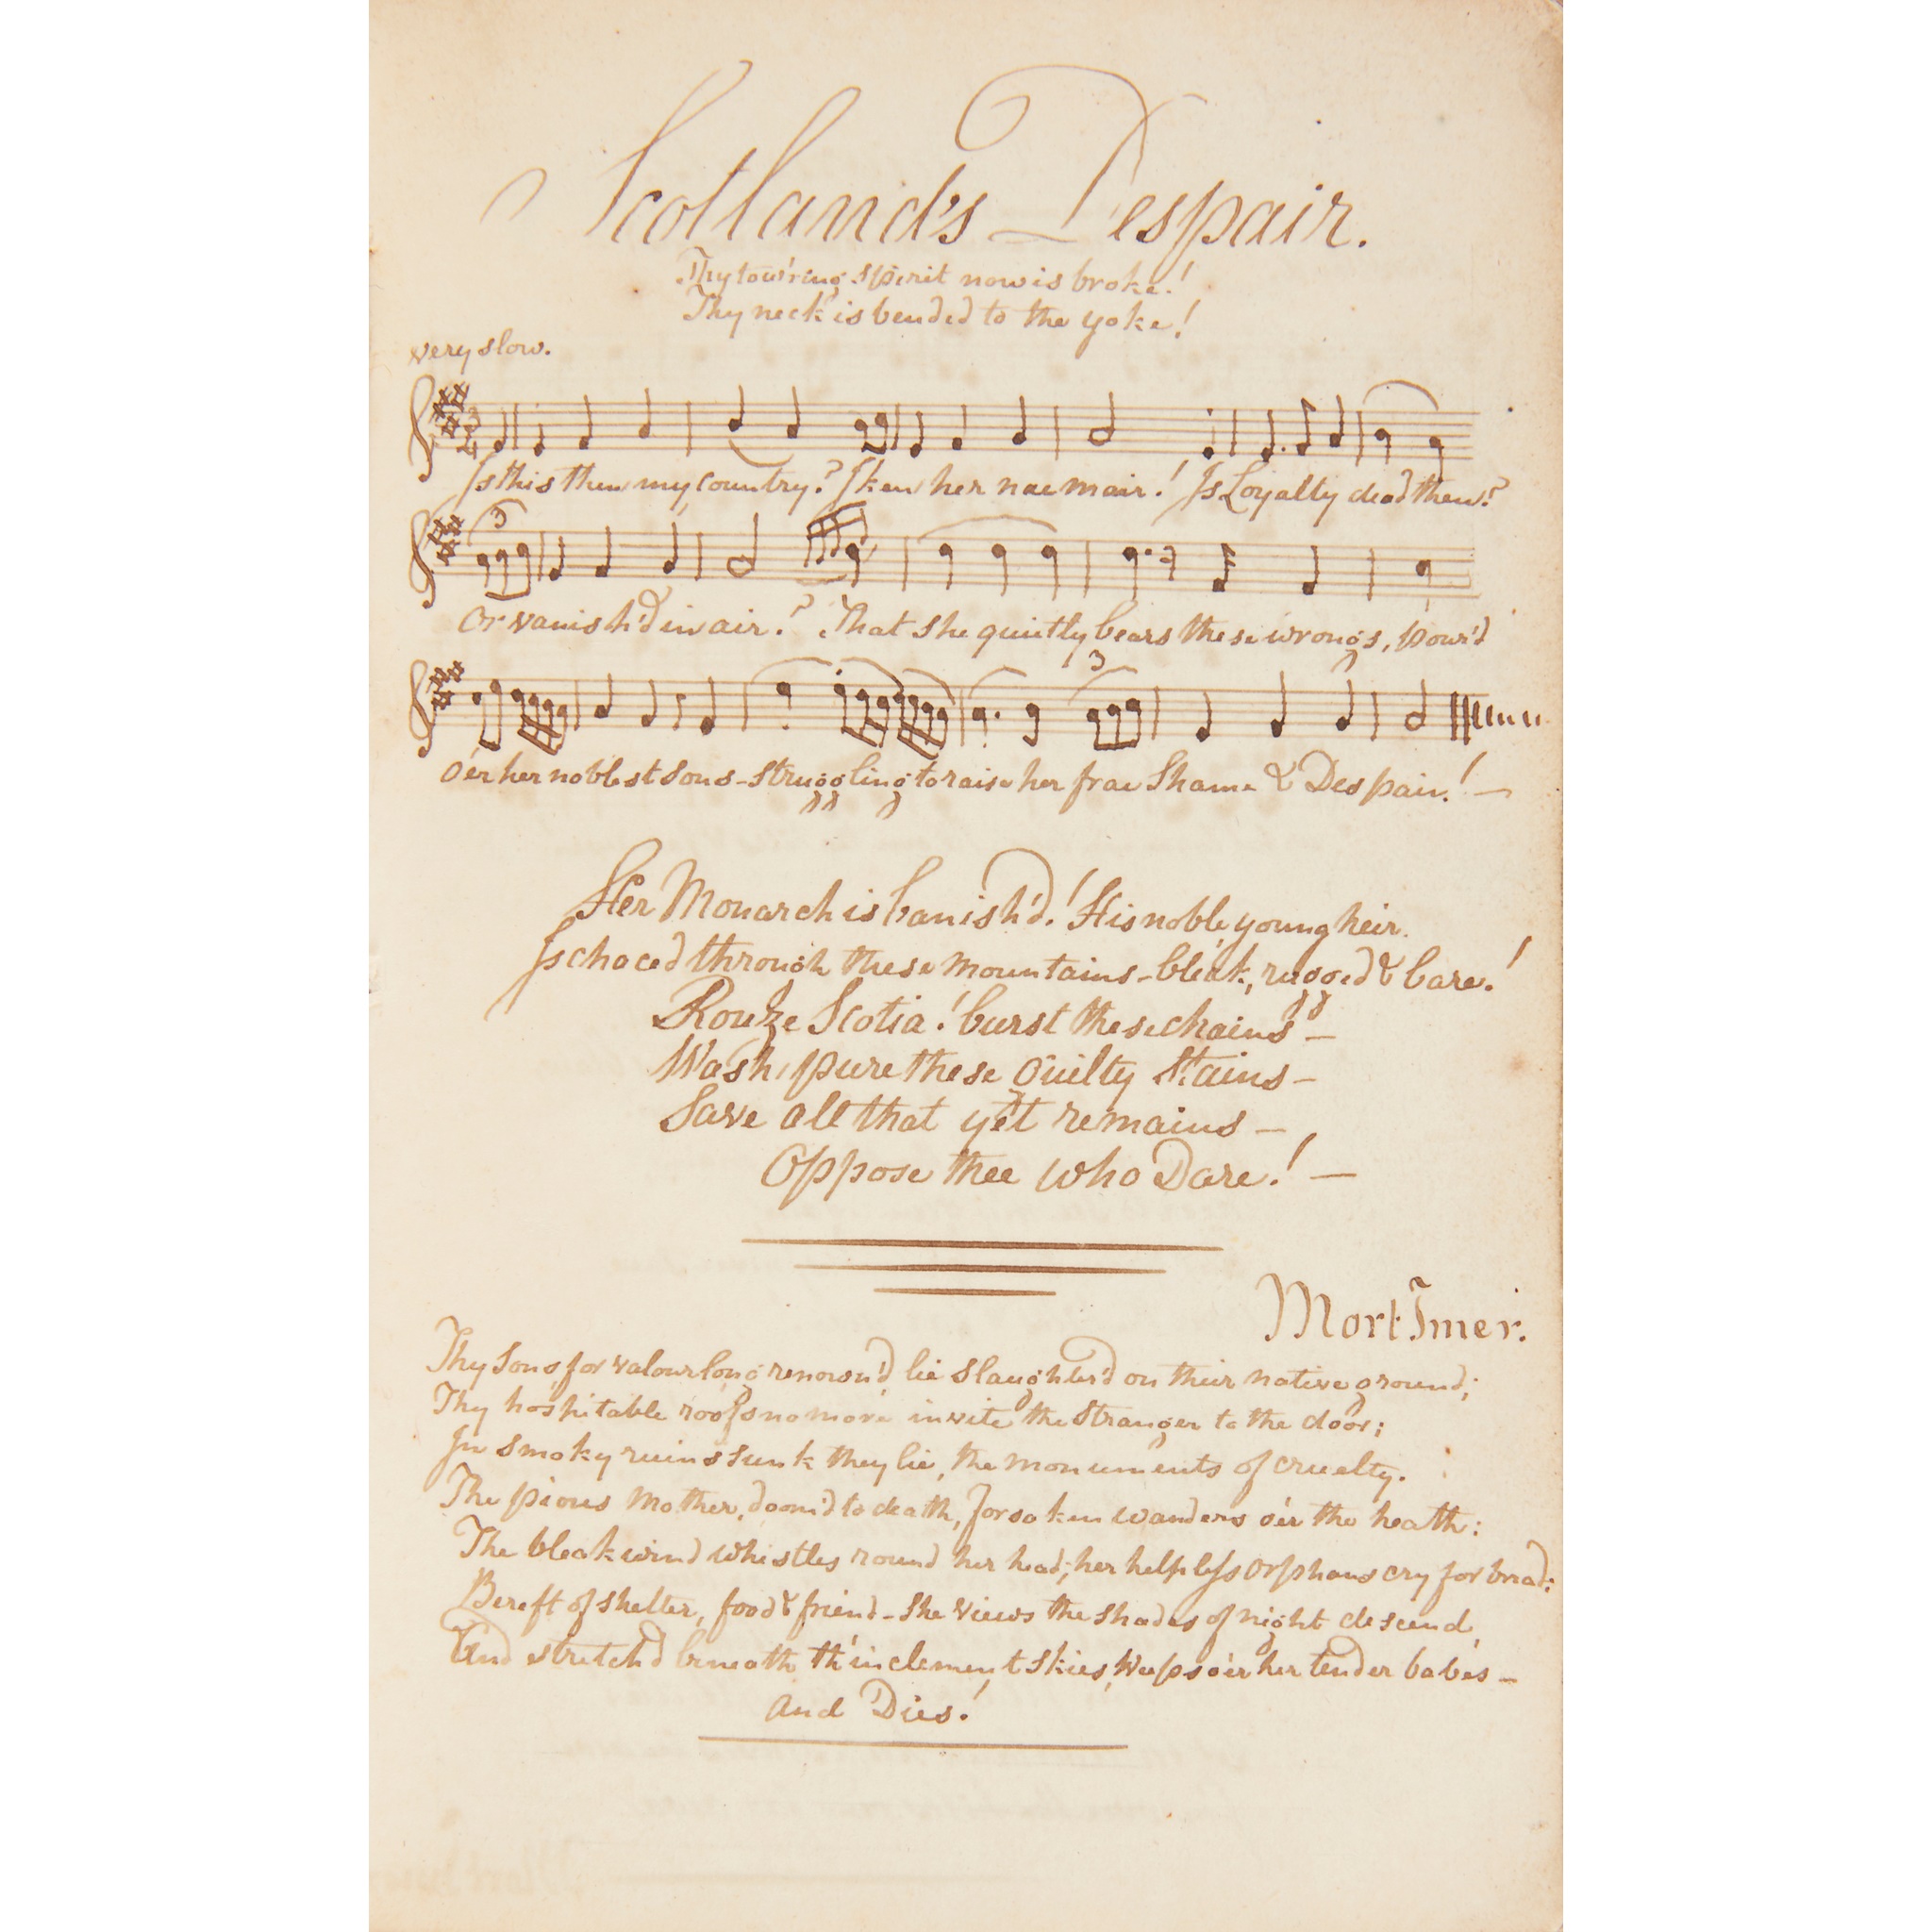 Scotland's Despair.
Thy tow'ring Spirit now is broke!
Thy neck is bended to the yoke!
very slow.
Is this then my Country? I ken her nae mair! Is Loyalty dead then?
3
Or vanish'd in air? That she quietly bears these wrongs, pour'd
3
o'er her noblest sons - struggling to raise her frae Shame & Despair! —
Her Monarch is banish'd! His noble young heir
Is chaced through these mountains - bleak, rugged & bare!
Rouze Scotia! burst these chains —
Wash pure these guilty Stains —
Save all that yet remains —
Oppose thee who Dare! —
MortImer.
Thy Sons, for valour long renown'd, lie slaughter'd on their native ground;
Thy hospitable roofs no more invite the Stranger to the door;
In smoky ruins sunk they lie, the monuments of cruelty.
The pious Mother, doom'd to death, forsaken wanders o'er the heath:
The bleak wind whistles round her head; her helpless orphans cry for bread:
Bereft of shelter, food & friend - She views the shades of night descend,
And stretch'd beneath th'inclement skies, weeps o'er her tender babes —
and Dies!